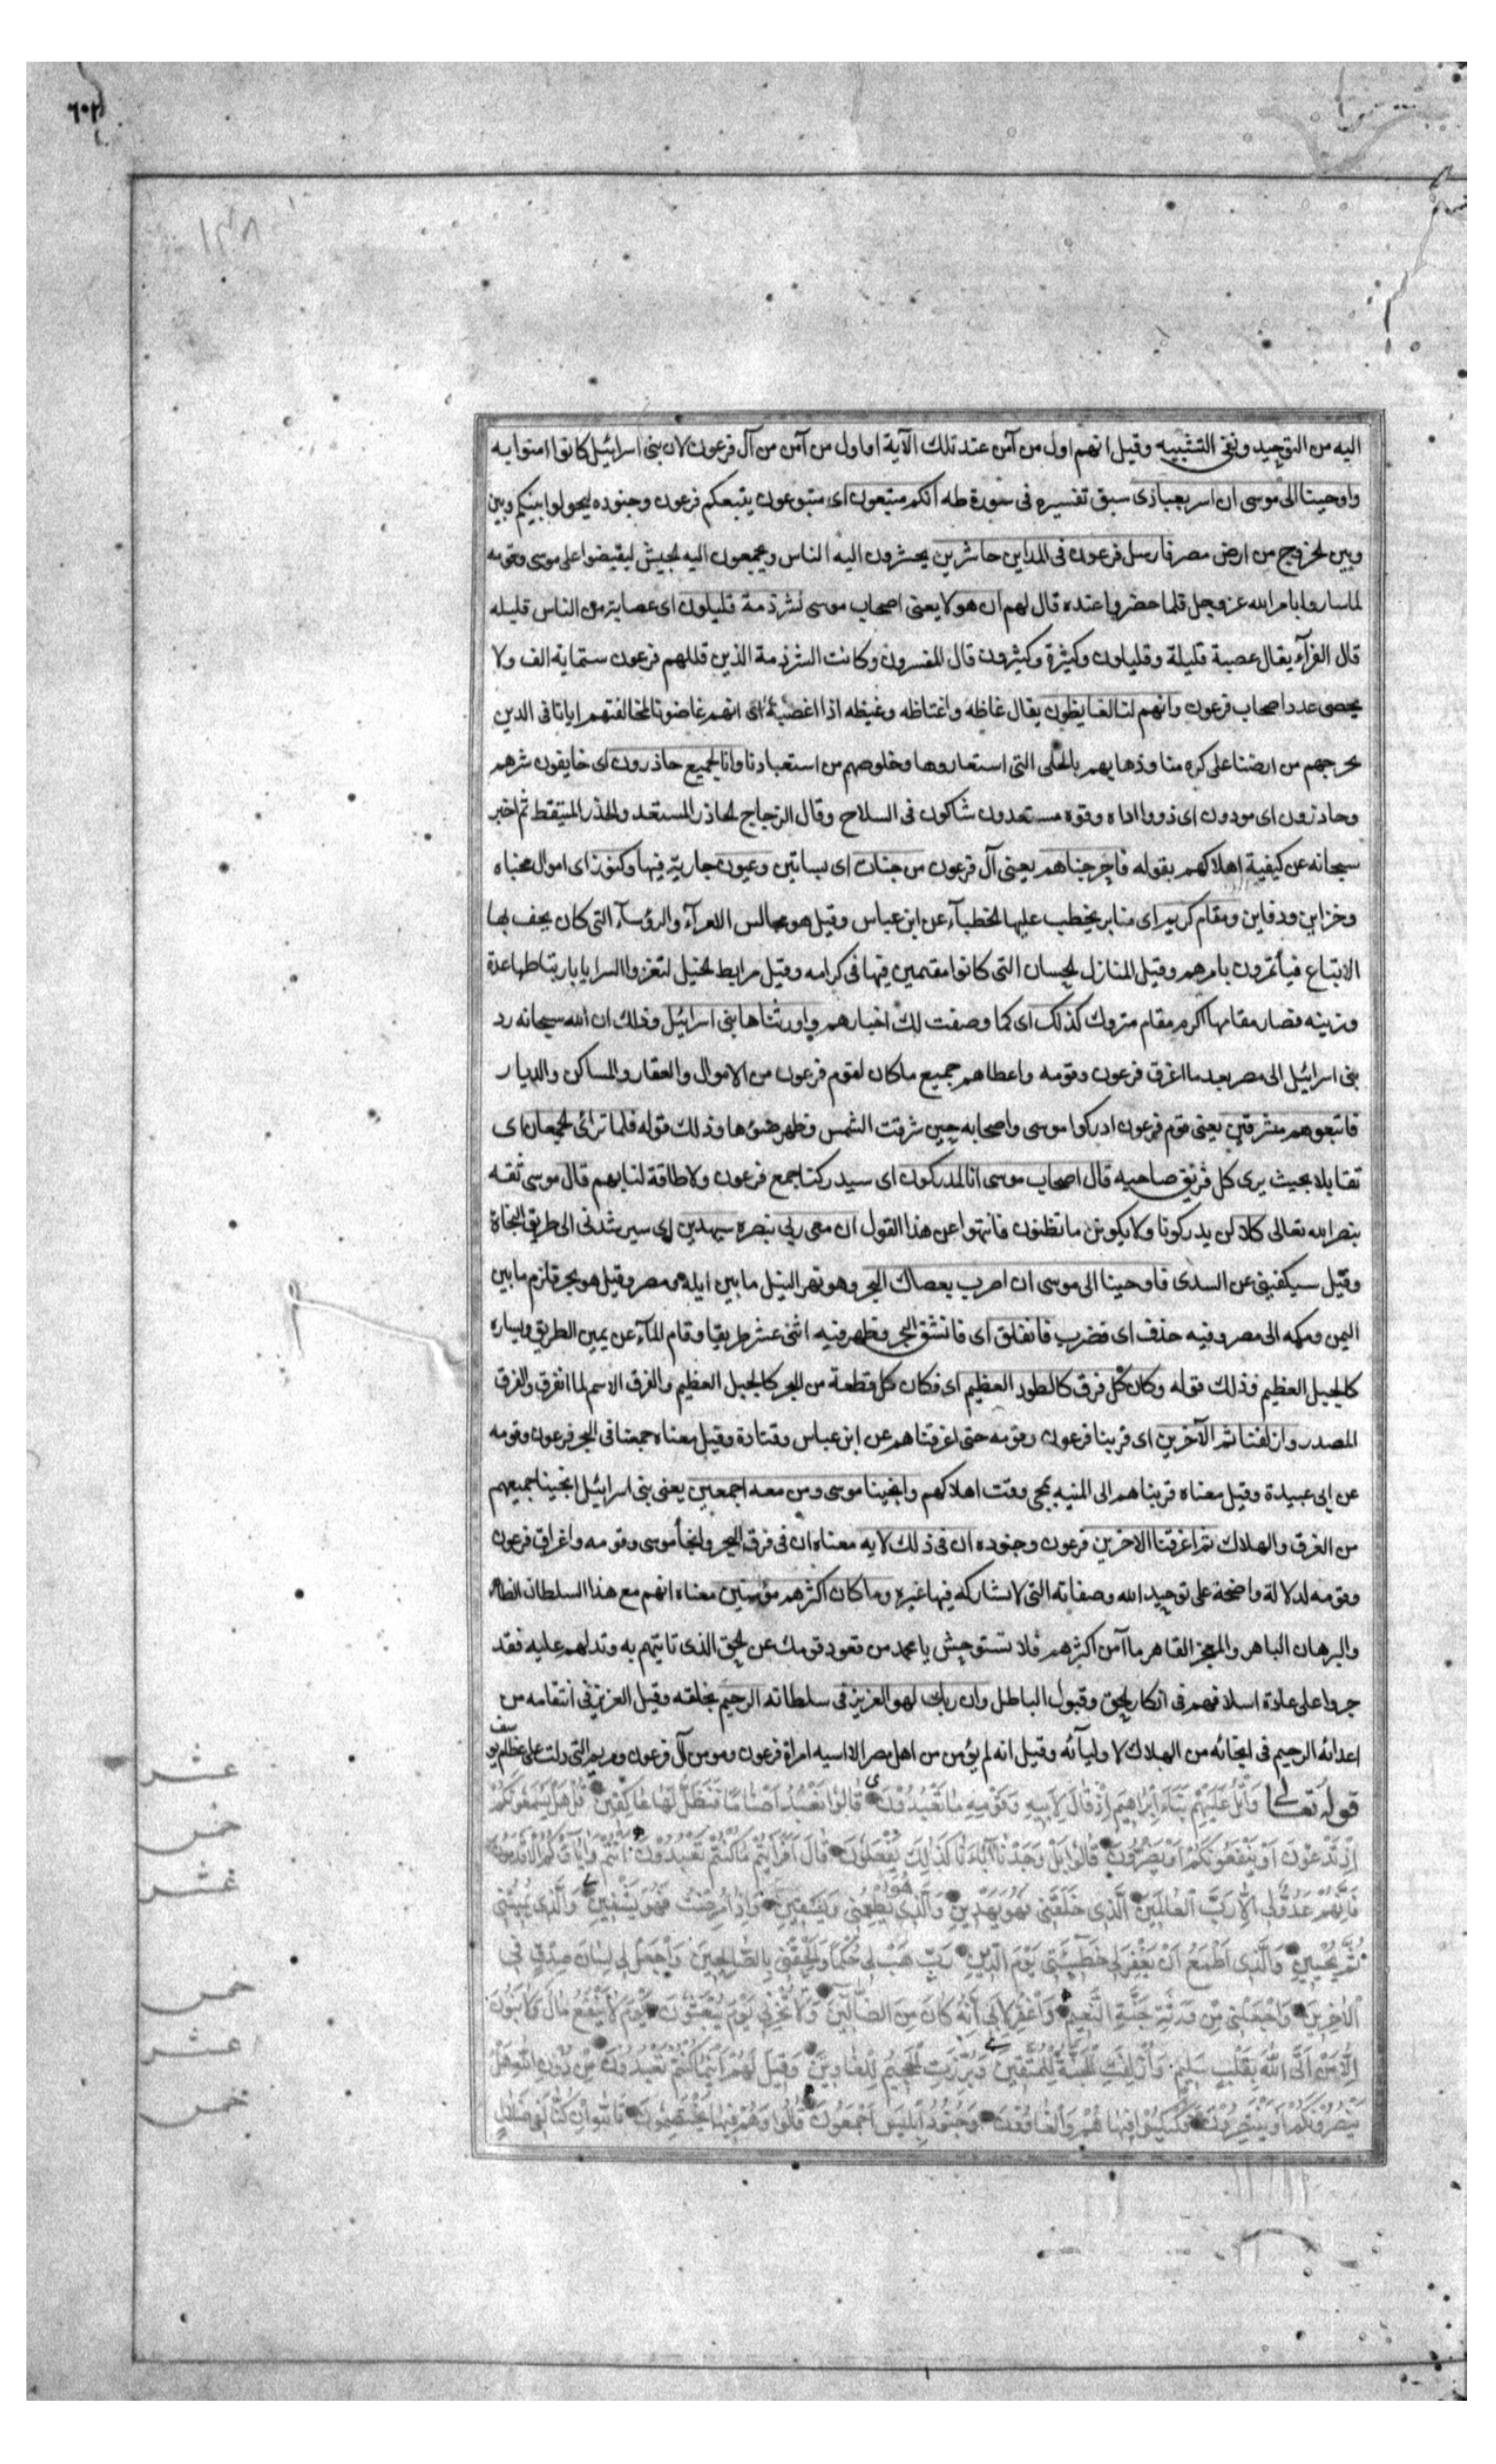 ٦٠٢
١٣٨
اليه من التوحيد ونفى التشبيه وقيل انهم اول من آمن عند تلك الآية او اول من آمن من آل فرعون لان بنى اسرائيل كانوا امنوا به
واوحينا الى موسى ان اسر بعبادى سبق تفسيره فى سورة طه انكم متبعون اى متبوعون يتبعكم فرعون وجنوده ليحولوا بينكم وبين
وبين الخروج من ارض مصر فارسل فرعون فى المداين حاشرين يحشرون اليه الناس ويجمعون اليه الجيش ليقبضوا على موسى وقومه
لما ساروا بامر الله عز وجل فلما حضروا عنده قال لهم ان هولا يعنى اصحاب موسى لشرذمة قليلون اى عصابة من الناس قليله
قال الفرآء يقال عصبة قليلة وقليلون وكثيرة وكثيرون قال المفسرون وكانت الشرذمة الذين قللهم فرعون ستماية الف ولا
يحصى عدد اصحاب فرعون وانهم لنا لغايظون يقال غاظه واغتاظه وغيظه اذا اغضبه اى انهم غاضونا لمخالفتهم ايانا فى الدين
بخروجهم من ارضنا على كره منا وذهابهم بالحلى التى استعاروها وخلوصهم من استعبادنا وانا لجميع حاذرون اى خايفون شرهم
وحاذرون اى مودون اى ذووا اداه وقوه مستعدون شاكون فى السلاح وقال الزجاج الحاذر المستعد والحذر المتيقظ ثم اخبر
سبحانه عن كيفية اهلاكهم بقوله فاخرجناهم يعنى آل فرعون من جنات اى بساتين وعيون جارية فيها وكنوز اى اموال مخباه
وخزاين ودفاين ومقام كريم اى منابر يخطب عليها الخطبآء عن ابن عباس وقيل هو مجالس الامرآء والرؤسآء التى كان يحف بها
الاتباع فيأتمرون بامرهم وقيل المنازل الحسان التى كانوا مقيمين فيها فى كرامه وقيل مرابط الخيل لتفرد السرايا بارتباطها عدة
وزينه فصار مقامها اكرم مقام متروك كذلك اى كما وصفت لك اخبارهم واورثناها بنى اسرائيل وذلك ان الله سبحانه رد
بنى اسرائيل الى مصر بعد ما اغرق فرعون وقومه واعطاهم جميع ما كان لقوم فرعون من الاموال والعقار والمساكن والديار
فاتبعوهم مشرقين يعنى قوم فرعون ادركوا موسى واصحابه حين شرقت الشمس وظهر ضوءها وذلك قوله فلما ترائ الجمعان اى
تقابلا بحيث يرى كل فريق صاحبه قال اصحاب موسى انا لمدركون اى سيدركنا جمع فرعون ولا طاقة لنا بهم قال موسى ثقه
بنصر الله تعالى كلا لن يدركونا ولا يكون ما تظنون فانتهوا عن هذا القول ان معى ربى بنصره سيهدين اى سيرشدنى الى طريق النجاة
وقيل سيكفينى عن السدى فاوحينا الى موسى ان اضرب بعصاك البحر وهو نهر النيل ما بين ايلة ومصر وقيل هو بحر قلزم ما بين
اليمن ومكه الى مصر وفيه حذف اى فضرب فانفلق اى فانشق البحر وظهر فيه اثنى عشر طريقا وقام المآء عن يمين الطريق ويساره
كالجبل العظيم فذلك قوله وكان كل فرق كالطود العظيم اى فكان كل قطعة من البحر كالجبل العظيم والفرق الاسم لما انفرق والفرق
المصدر وازلفنا ثم الآخرين اى قربنا فرعون وقومه حتى اغرقناهم عن ابن عباس وقتادة وقيل معناه جمعنا فى البحر فرعون وقومه
عن ابى عبيدة وقيل معناه قربناهم الى المنيه بمجى وقت اهلاكهم وانجينا موسى ومن معه اجمعين يعنى بنى اسرائيل انجينا جميعهم
من الغرق والهلاك ثم اغرقنا الاخرين فرعون وجنوده ان فى ذلك لايه معناه ان فى فرق البحر وانجأ موسى وقومه واغراق فرعون
وقومه لدلالة واضحة على توحيد الله وصفاته التى لا يشاركه فيها غيره وما كان اكثرهم مؤمنين معناه انهم مع هذا السلطان الظاهر
والبرهان الباهر والمعجز القاهر ما آمن اكثرهم فلا تستوحش يا محمد من قعود قومك عن الحق الذى تاتيهم به وتدلهم عليه فقد
جروا على عادة اسلافهم فى انكار الحق وقبول الباطل وان ربك لهو العزيز فى سلطانه الرحيم بخلقه وقيل العزيز فى انتقامه من
اعدائه الرحيم فى انجائه من الهلاك لاوليآئه وقيل انه لم يؤمن من اهل مصر الا اسيه امراة فرعون ومومن آل فرعون ومريم التى دلت على عظام يوسف
قوله تعالى وَاتْلُ عَلَيْهِمْ نَبَأَ اِبْرَاهِيمَ اِذْ قَالَ لِاَبِيهِ وَقَوْمِهِ مَا تَعْبُدُونَ قَالُوا نَعْبُدُ اَصْنَامًا فَنَظَلُّ لَهَا عَاكِفِينَ قَالَ هَلْ يَسْمَعُونَكُمْ
اِذْ تَدْعُونَ اَوْ يَنْفَعُونَكُمْ اَوْ يَضُرُّونَ قَالُوا بَلْ وَجَدْنَا آبَاءَنَا كَذَلِكَ يَفْعَلُونَ قَالَ اَفَرَاَيْتُمْ مَا كُنْتُمْ تَعْبُدُونَ اَنْتُمْ وَآبَاؤُكُمُ الْاَقْدَمُونَ
فَاِنَّهُمْ عَدُوٌّ لِى اِلَّا رَبَّ الْعَالَمِينَ الَّذِى خَلَقَنِى فَهُوَ يَهْدِينِ وَالَّذِى هُوَ يُطْعِمُنِى وَيَسْقِينِ وَاِذَا مَرِضْتُ فَهُوَ يَشْفِينِ وَالَّذِى يُمِيتُنِى
ثُمَّ يُحْيِينِ وَالَّذِى اَطْمَعُ اَنْ يَغْفِرَ لِى خَطِيئَتِى يَوْمَ الدِّينِ رَبِّ هَبْ لِى حُكْمًا وَاَلْحِقْنِى بِالصَّالِحِينَ وَاجْعَلْ لِى لِسَانَ صِدْقٍ فِى
الْآخِرِينَ وَاجْعَلْنِى مِنْ وَرَثَةِ جَنَّةِ النَّعِيمِ وَاغْفِرْ لِاَبِى اِنَّهُ كَانَ مِنَ الضَّالِّينَ وَلَا تُخْزِنِى يَوْمَ يُبْعَثُونَ يَوْمَ لَا يَنْفَعُ مَالٌ وَلَا بَنُونَ
اِلَّا مَنْ اَتَى اللهَ بِقَلْبٍ سَلِيمٍ وَاُزْلِفَتِ الْجَنَّةُ لِلْمُتَّقِينَ وَبُرِّزَتِ الْجَحِيمُ لِلْغَاوِينَ وَقِيلَ لَهُمْ اَيْنَمَا كُنْتُمْ تَعْبُدُونَ مِنْ دُونِ اللهِ هَلْ
يَنْصُرُونَكُمْ اَوْ يَنْتَصِرُونَ فَكُبْكِبُوا فِيهَا هُمْ وَالْغَاوُونَ وَجُنُودُ اِبْلِيسَ اَجْمَعُونَ قَالُوا وَهُمْ فِيهَا يَخْتَصِمُونَ تَاللهِ اِنْ كُنَّا لَفِى ضَلَالٍ
عشر
خمس
عشر
خمس
عشر
خمس